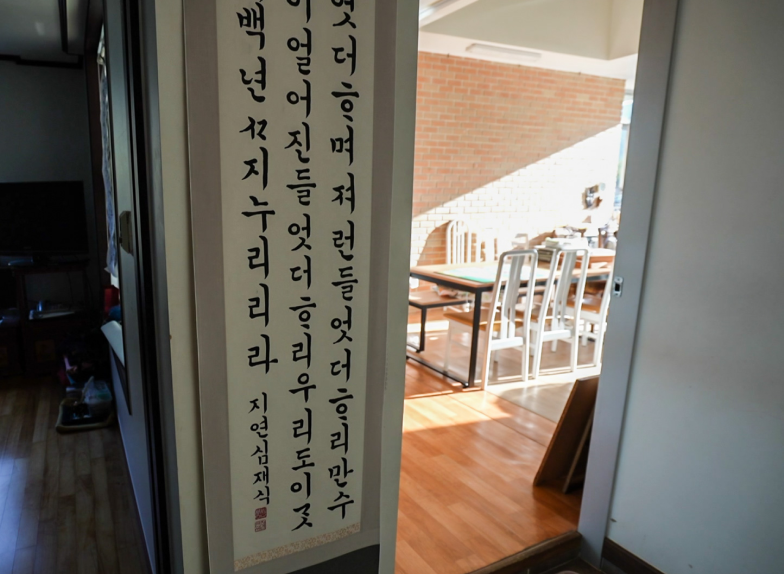 엇더ᄒᆞ며져런들엇더ᄒᆞ리만수
이얼어진들엇더ᄒᆞ리우리도이ᄀᆞᆺ
백년ᄭᆞ지누리리라
지연심재식